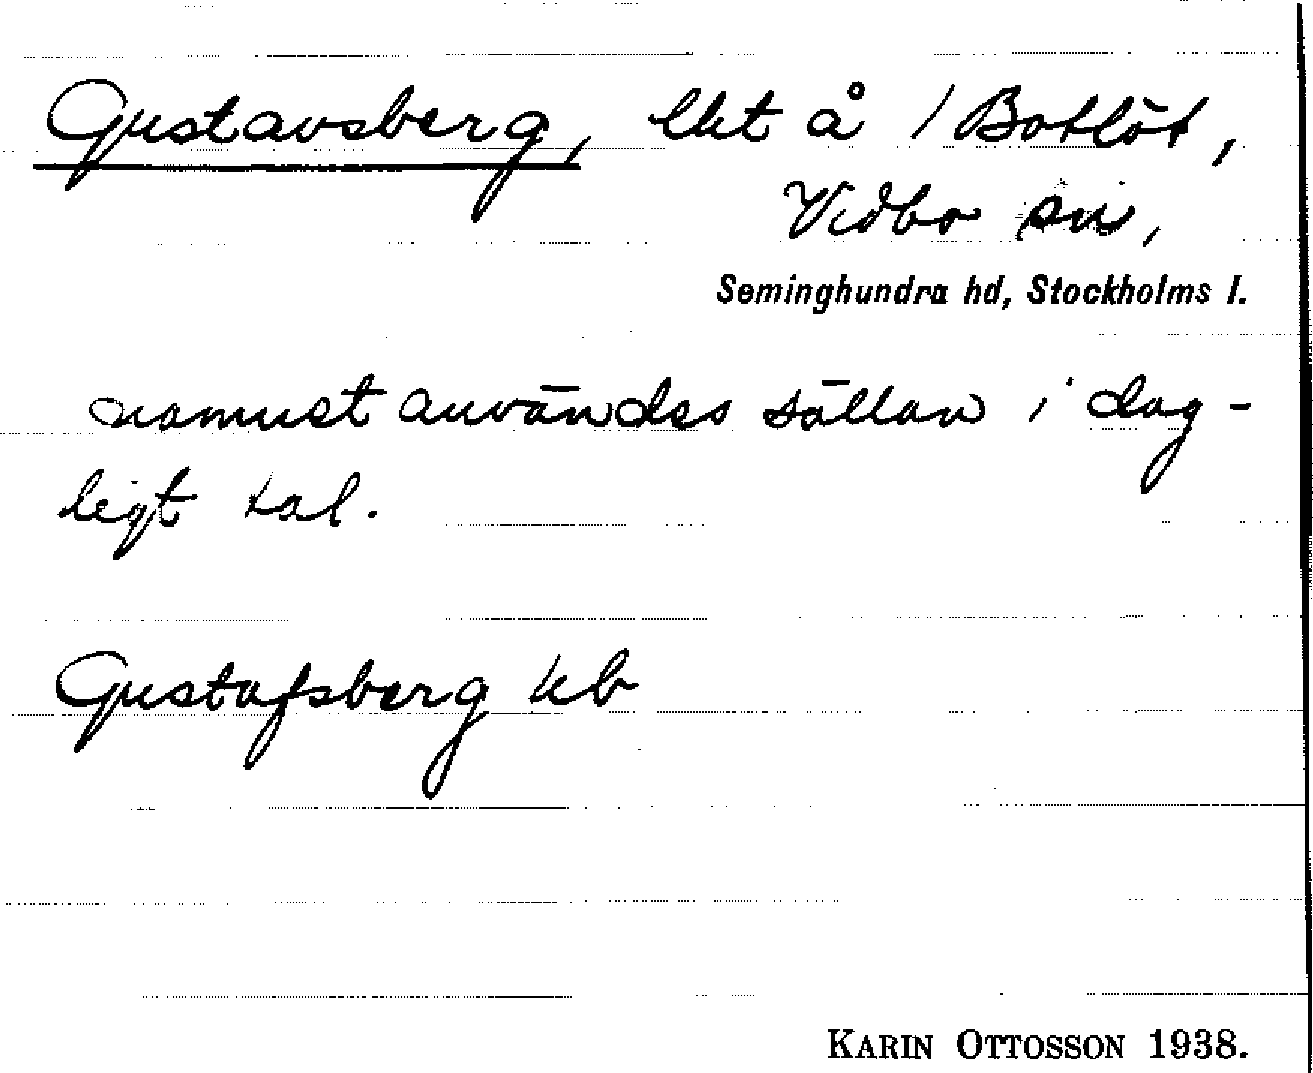 Gustavsberg, lht å 1 Botlöt,
Vidbo sn,
Seminghundra hd, Stockholms l.
namnet användes sällan i dag-
ligt tal.
Gustafsberg kb
KARIN OTTOSSON 1938.